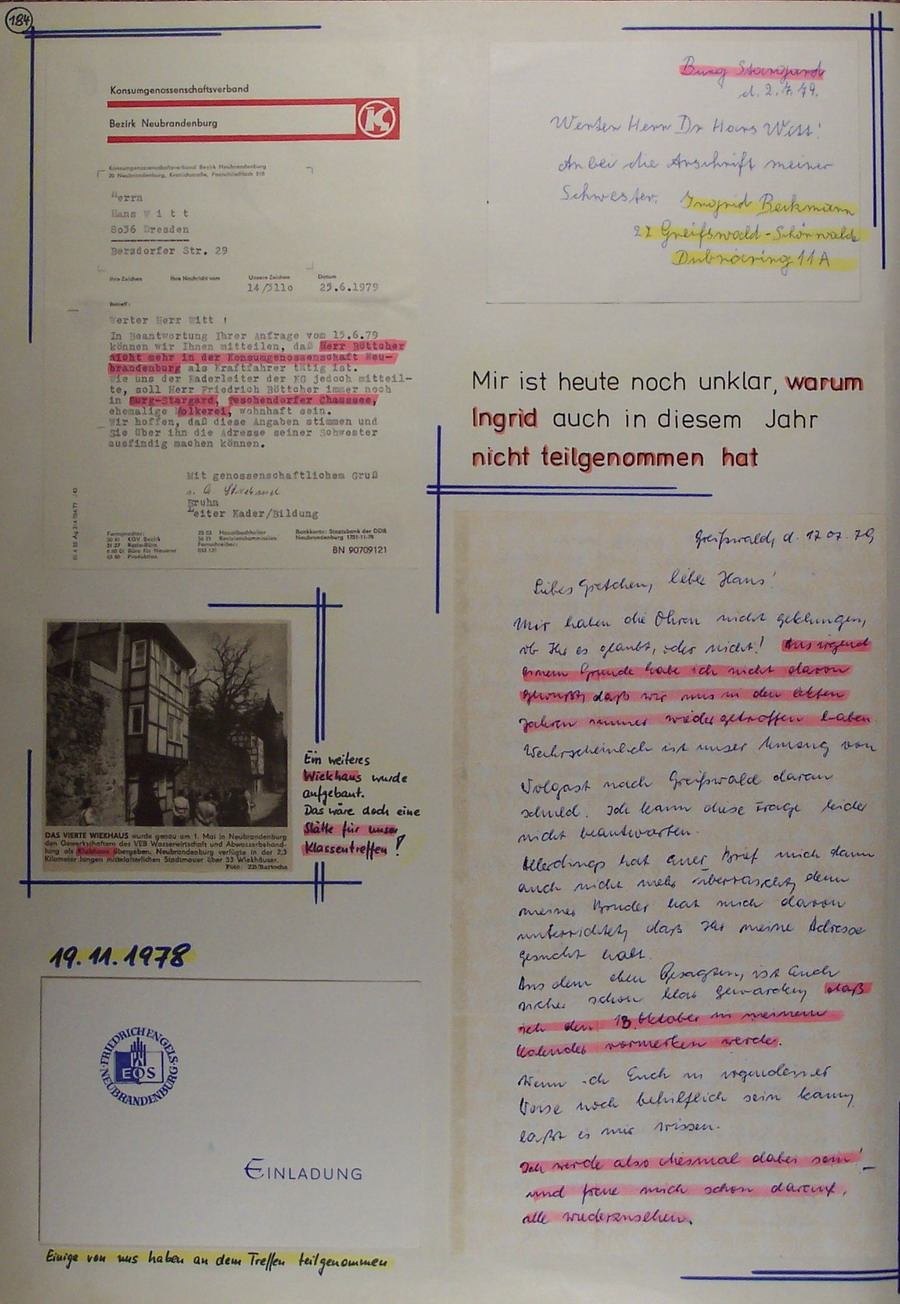 184
Konsumgenossenschaftsverband
Bezirk Neubrandenburg
K
Konsumgenossenschaftsverband Bezirk Neubrandenburg
20 Neubrandenburg, Kranichstraße, Postschließfach 310
Herrn
Hans W i t t
8036 Dresden
Bersdorfer Str. 29
Ihre Zeichen Ihre Nachricht vom Unsere Zeichen Datum
14/5110 25.6.1979
Betreff:
Werter Herr Witt !
In Beantwortung Ihrer Anfrage vom 15.6.79
können wir Ihnen mitteilen, daß Herr Böttcher
nicht mehr in der Konsumgenossenschaft Neu-
brandenburg als Kraftfahrer tätig ist.
Wie uns der Kaderleiter der KG jedoch mitteil-
te, soll Herr Friedrich Böttcher immer noch
in Burg-Stargard, Teschendorfer Chaussee,
ehemalige Molkerei, wohnhaft sein.
Wir hoffen, daß diese Angaben stimmen und
Sie über ihn die Adresse seiner Schwester
ausfindig machen können.
Mit genossenschaftlichem Gruß
Bruhn
Leiter Kader/Bildung
Fernsprecher:
Bankkonto: Staatsbank der DDR
BN 90709121
Burg Stargard
d. 2.7.79.
Werter Herr Dr Hans Witt!
Anbei die Anschrift meiner
Schwester. Ingrid Beckmann
22 Greifswald-Schönwalde
Dubnaring 11A
Mir ist heute noch unklar, warum
Ingrid auch in diesem Jahr
nicht teilgenommen hat
Greifswald, d. 17.07.79
Liebes Gretchen, lieber Hans!
Mir haben die Ohren nicht geklungen,
ob Ihr es glaubt, oder nicht! Aus irgend
einem Grunde habe ich nicht davon
gewußt, daß wir uns in den letzten
Jahren immer wieder getroffen haben
Wahrscheinlich ist unser Umzug von
Wolgast nach Greifswald daran
schuld. Ich kann diese Frage leider
nicht beantworten.
Allerdings hat Euer Brief mich dann
auch nicht mehr überrascht, denn
meiner Bruder hat mich davon
unterrichtet, daß Ihr meine Adresse
gesucht habt.
Aus dem oben Gesagten, ist Euch
sicher schon klar geworden, daß
ich den 13. Oktober in meinem
Kalender vormerken werde.
Wenn ich Euch in irgendeiner
Weise noch behilflich sein kann,
laßt es mir wissen.
Ich werde also diesmal dabei sein!
und freue mich schon darauf,
alle wiederzusehen.
DAS VIERTE WIEKHAUS wurde genau am 1. Mai in Neubrandenburg
den Gewerkschaftern des VEB Wasserwirtschaft und Abwasserbehand-
lung als Klubhaus übergeben. Neubrandenburg verfügte in der 2,3
Kilometer langen mittelalterlichen Stadtmauer über 53 Wiekhäuser.
Foto: ZB/Bartocha
Ein weiteres
Wiekhaus wurde
aufgebaut.
Das wäre doch eine
Stätte für unser
Klassentreffen!
19.11.1978
FRIEDRICH ENGELS
EOS
NEUBRANDENBURG
EINLADUNG
Einige von uns haben an dem Treffen teilgenommen